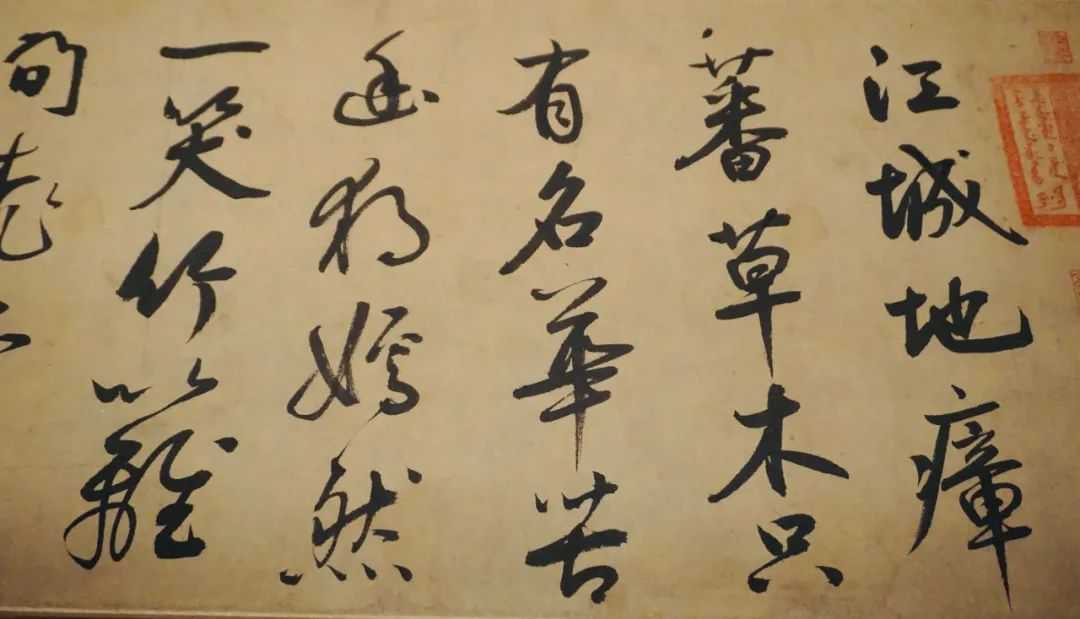 江城地瘴
蕃草木只
有名華苦
幽獨嫣然
一笑竹籬
間桃